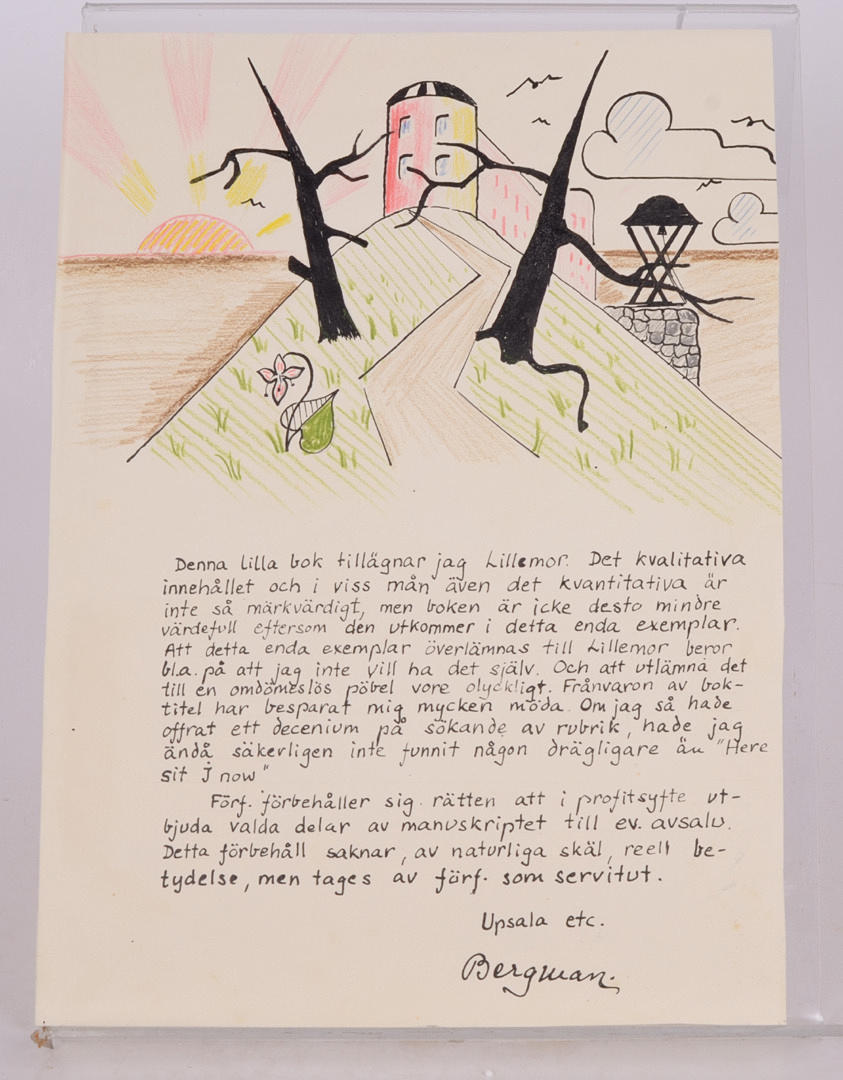 Denna lilla bok tillägnar jag Lillemor. Det kvalitativa
innehållet och i viss mån även det kvantitativa är
inte så märkvärdigt, men boken är icke desto mindre
värdefull eftersom den utkommer i detta enda exemplar.
Att detta enda exemplar överlämnas till Lillemor beror
bl.a. på att jag inte vill ha det själv. Och att utlämna det
till en omdömeslös pöbel vore olyckligt. Frånvaron av bok-
titel har besparat mig mycken möda. Om jag så hade
offrat ett decenium på sökande av rubrik, hade jag
ändå säkerligen inte funnit någon drägligare än "Here
sit J now"
Förf. förbehåller sig rätten att i profitsyfte ut-
bjuda valda delar av manuskriptet till ev. avsalu.
Detta förbehåll saknar, av naturliga skäl, reell be-
tydelse, men tages av förf. som servitut.
Upsala etc.
Bergman.